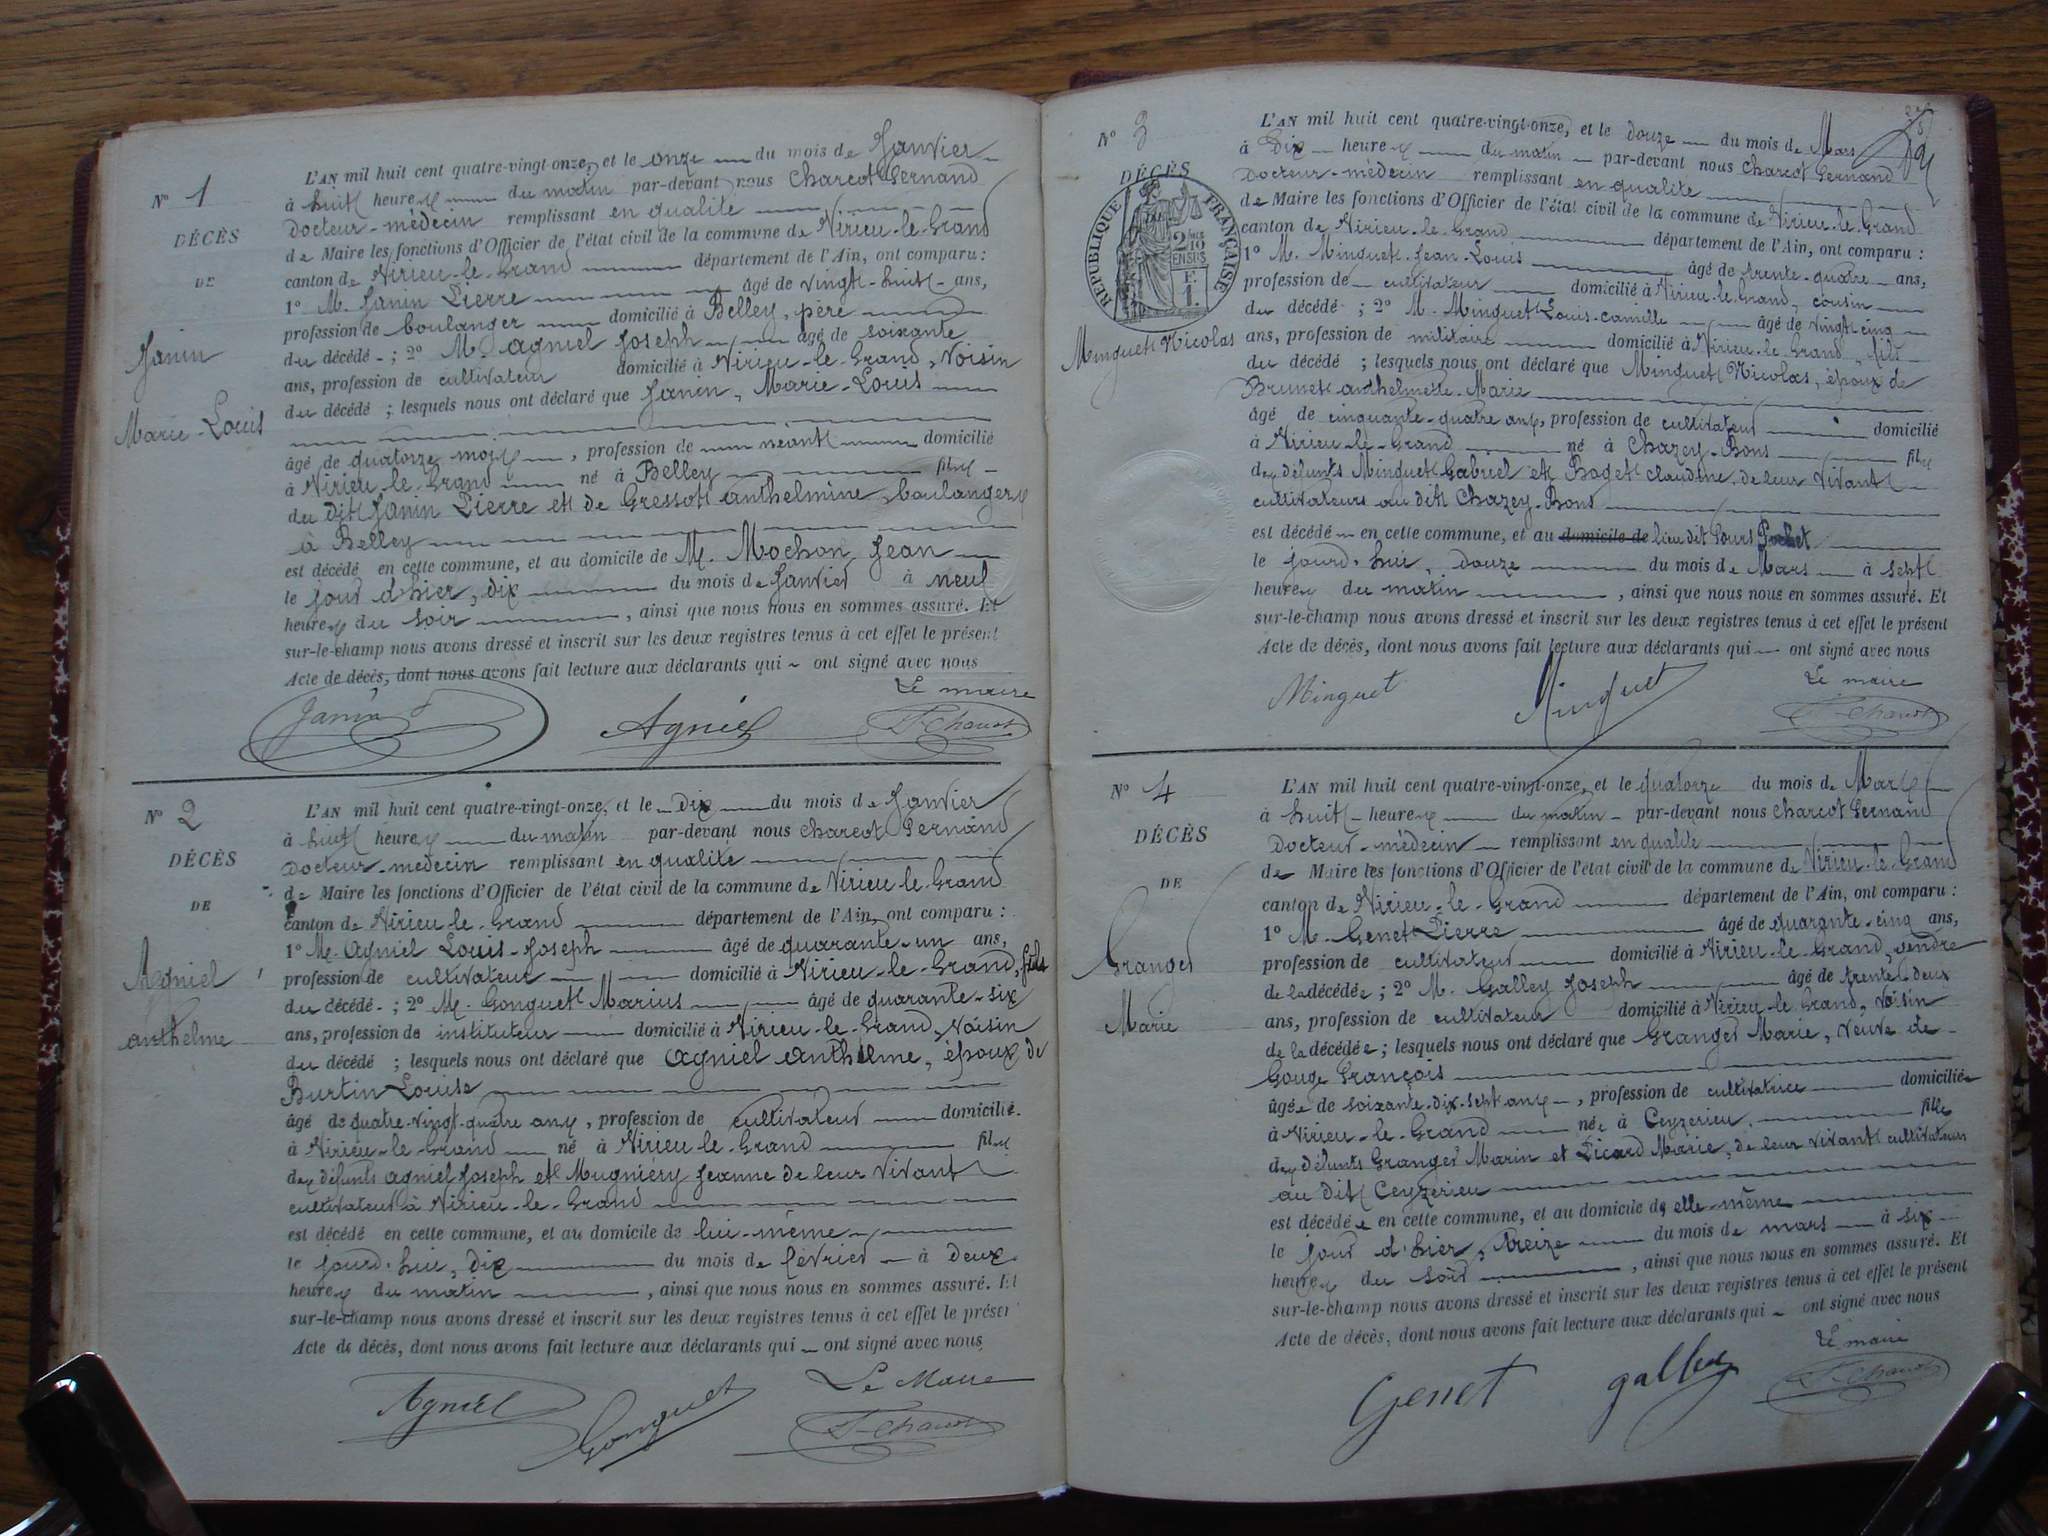 N° 1
DÉCÈS
DE
Janin
Marie-Louis
L'AN mil huit cent quatre-vingt-onze, et le onze du mois de Janvier
à huit heures du matin par-devant nous Charcot Fernand
Docteur-médecin remplissant en qualité
de Maire les fonctions d'Officier de l'état civil de la commune de Virieu-le-Grand
canton de Virieu-le-Grand département de l'Ain, ont comparu :
1° M. Janin Pierre âgé de vingt-huit ans,
profession de boulanger domicilié à Belley, père
du décédé ; 2° M. Agniel Joseph âgé de soixante
ans, profession de cultivateur domicilié à Virieu-le-Grand, Voisin
du décédé ; lesquels nous ont déclaré que Janin, Marie-Louis
âgé de quatorze mois, profession de néant domicilié
à Virieu-le-Grand né à Belley fils
du dit Janin Pierre et de Gressot Anthelmine, boulangers
à Belley
est décédé en cette commune, et au domicile de M. Mochon Jean
le jour d'hier, dix du mois de Janvier à neuf
heures du soir, ainsi que nous nous en sommes assuré. Et
sur-le-champ nous avons dressé et inscrit sur les deux registres tenus à cet effet le présent
Acte de décès, dont nous avons fait lecture aux déclarants qui ont signé avec nous
Le maire
Janin Agniel F. Charcot
N° 2
DÉCÈS
DE
Agniel
anthelme
L'AN mil huit cent quatre-vingt-onze, et le Dix du mois de Janvier
à huit heures du matin par-devant nous Charcot Fernand
Docteur-medecin remplissant en qualité
de Maire les fonctions d'Officier de l'état civil de la commune de Virieu-le-Grand
canton de Virieu-le-Grand département de l'Ain, ont comparu :
1° M. Agniel Louis-Joseph âgé de quarante-un ans,
profession de cultivateur domicilié à Virieu-le-Grand, fils
du décédé ; 2° M. Gonguet Marius âgé de quarante-six
ans, profession de instituteur domicilié à Virieu-le-Grand, Voisin
du décédé ; lesquels nous ont déclaré que Agniel anthelme, époux de
Burtin Louise
âgé de quatre-vingt-quatre ans, profession de cultivateur domicilié
à Virieu-le-Grand né à Virieu-le-Grand fils
des défunts Agniel Joseph et Mugniéry Jeanne de leur vivant
cultivateur à Virieu-le-Grand
est décédé en cette commune, et au domicile de lui-même
le jourd'hui, dix du mois de février à deux
heures du matin, ainsi que nous nous en sommes assuré. Et
sur-le-champ nous avons dressé et inscrit sur les deux registres tenus à cet effet le présent
Acte de décès, dont nous avons fait lecture aux déclarants qui ont signé avec nous
Le Maire
Agniel Gonguet F. Charcot
N° 3
DÉCÈS
RÉPUBLIQUE FRANÇAISE
2/10 EN SUS
F. 1.
Minguet Nicolas
L'AN mil huit cent quatre-vingt-onze, et le douze du mois de Mars
à Dix heures du matin par-devant nous Charcot Fernand
Docteur-médecin remplissant en qualité
de Maire les fonctions d'Officier de l'état civil de la commune de Virieu-le-Grand
canton de Virieu-le-Grand département de l'Ain, ont comparu :
1° M. Minguet Jean-Louis âgé de trente-quatre ans,
profession de cultivateur domicilié à Virieu-le-Grand, cousin
du décédé ; 2° M. Minguet Louis-camille âgé de vingt cinq
ans, profession de militaire domicilié à Virieu-le-Grand, fils
du décédé ; lesquels nous ont déclaré que Minguet Nicolas, époux de
Brunet anthelmette-Marie
âgé de cinquante-quatre ans, profession de cultivateur domicilié
à Virieu-le-Grand né à Chazey-Bons fils
des défunts Minguet Gabriel et Baget claudine, de leur vivant
cultivateurs au dit Chazey-Bons
est décédé en cette commune, et au domicile de lieu dit Pochet
le jourd'hui, douze du mois de Mars à sept
heures du matin, ainsi que nous nous en sommes assuré. Et
sur-le-champ nous avons dressé et inscrit sur les deux registres tenus à cet effet le présent
Acte de décès, dont nous avons fait lecture aux déclarants qui ont signé avec nous
Le maire
Minguet Minguet F. Charcot
N° 4
DÉCÈS
DE
Granger
Marie
L'AN mil huit cent quatre-vingt-onze, et le quatorze du mois de Mars
à huit heures du matin par-devant nous Charcot Fernand
Docteur-médecin remplissant en qualité
de Maire les fonctions d'Officier de l'état civil de la commune de Virieu-le-Grand
canton de Virieu-le-Grand département de l'Ain, ont comparu :
1° M. Genet Pierre âgé de quarante-cinq ans,
profession de cultivateur domicilié à Virieu-le-Grand, gendre
de la décédée ; 2° M. Galley Joseph âgé de trente-deux
ans, profession de cultivateur domicilié à Virieu-le-Grand, Voisin
de la décédée ; lesquels nous ont déclaré que Granger Marie, Veuve de
Gouge François
âgée de soixante-dix-sept ans, profession de cultivatrice domiciliée
à Virieu-le-Grand née à Ceyzerieu, fille
des défunts Granger Marin et Picard Marie, de leur vivant cultivateurs
au dit Ceyzerieu
est décédée en cette commune, et au domicile de elle-même
le jour d'hier, treize du mois de mars à six
heures du soir, ainsi que nous nous en sommes assuré. Et
sur-le-champ nous avons dressé et inscrit sur les deux registres tenus à cet effet le présent
Acte de décès, dont nous avons fait lecture aux déclarants qui ont signé avec nous
Le maire
Genet galley F. Charcot